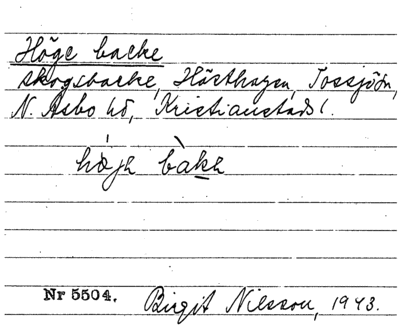 Höge backe
Skogsbacke, Hästhagen, Tossjön,
N. Åsbo hd, Kristianstads l.
höje bake
Nr 5504. Birgit Nilsson, 1943.